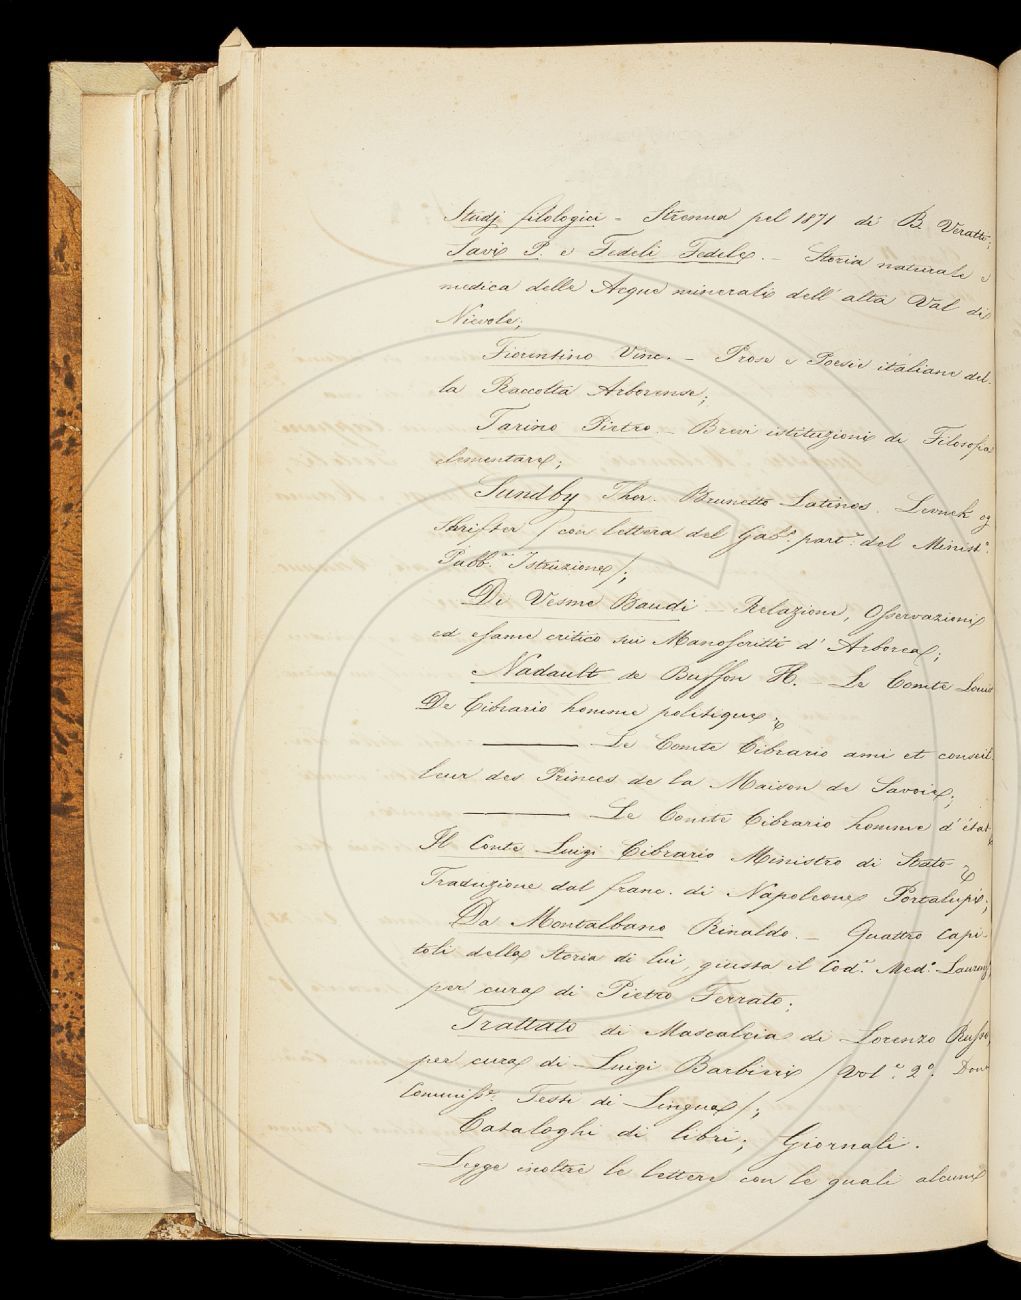 Studj filologici - Strenna pel 1871 di B. Veratti;
Savi P. e Fedeli Fedele. - Storia naturale e
medica delle Acque minerali dell'alta Val di
Nievole;
Fiorentino Vinc. - Prose e Poesie italiane del-
la Raccolta Arborense;
Tarino Pietro - Brevi istituzioni di Filosofia
elementare;
Sundby Thor. Brunetto Latinos. Levnek og
Skrifter / con lettera del Gab.º part.e del Minist.º
Pubb.a Istruzione /;
Di Vesme Baudi - Relazione, Osservazioni
ed esame critico sui Manoscritti d'Arborea;
Nadault de Buffon H. - Le Comte Louis
De Cibrario homme politique;
——— Le Comte Cibrario ami et conseil
leur des Princes de la Maison de Savoie;
——— Le Comte Cibrario homme d'état
Il Conte Luigi Cibrario Ministro di Stato -
Traduzione dal franc. di Napoleone Portalupi;
Da Montalbano Rinaldo. - Quattro Capi-
toli della Storia di lui, giusta il Cod.e Med.º Laurenz.º
per cura di Pietro Ferrato;
Trattato di Mascalcia di Lorenzo Russo,
per cura di Luigi Barbieri / Vol.e 2.º Dono
Commiss.e Testi di Lingua /;
Cataloghi di libri; Giornali.
Legge inoltre le lettere con le quali alcuni